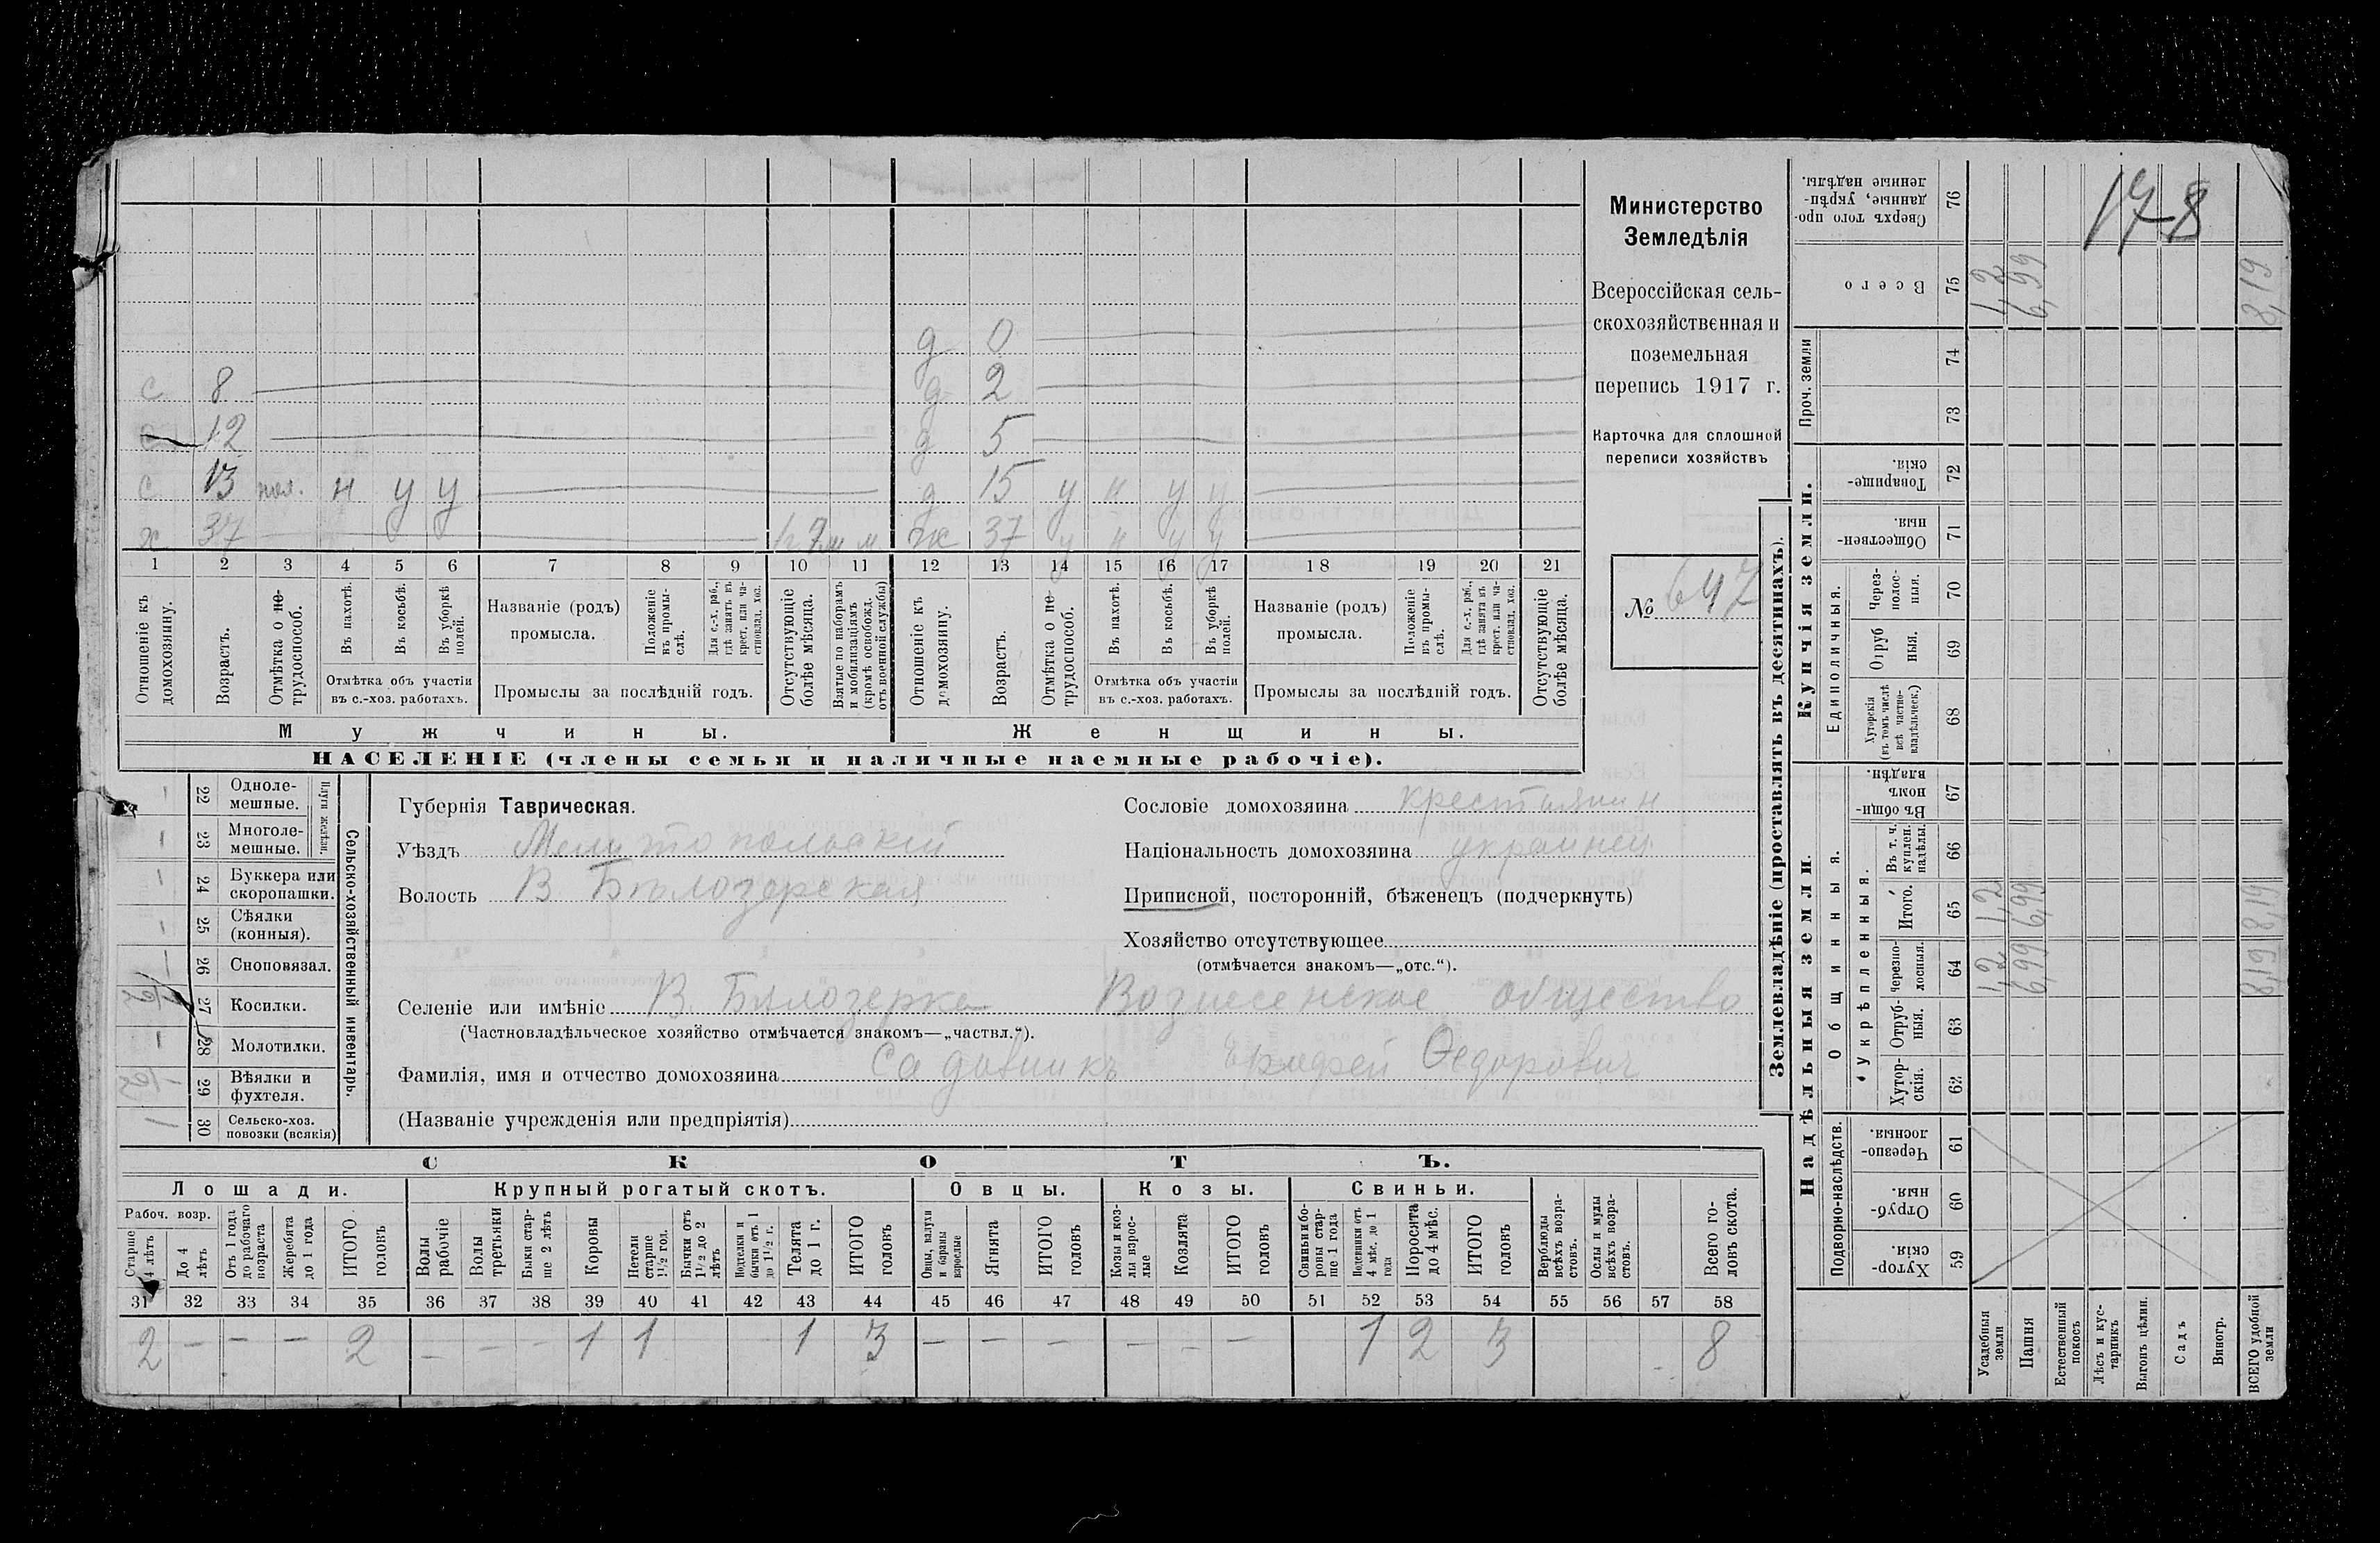 178
Министерство
Земледѣлія
Всероссійская сель-
скохозяйственная и
поземельная
перепись 1917 г.
Карточка для сплошной
переписи хозяйствъ
№ 647
д 0
с 8 д 2
с 12 д 5
с 13 пол. н у у д 15 у н у у
х 37 м жк 37 у н у у
1 2 3 4 5 6 7 8 9 10 11 12 13 14 15 16 17 18 19 20 21
Отношеніе къ домохозяину.
Возрастъ.
Отмѣтка о не- трудоспособ.
Въ пахотѣ.
Въ косьбѣ.
Въ уборкѣ полей.
Отмѣтка объ участіи
въ с.-хоз. работахъ.
Названіе (родъ)
промысла.
Положеніе въ промы- слѣ.
Для с.-х. раб., гдѣ занятъ въ крест. или ча- стновлад. хоз.
Промыслы за послѣдній годъ.
Отсутствующіе болѣе мѣсяца.
Взятые по наборамъ и мобилизаціямъ (кромѣ освобожд. отъ военной службы)
Отношеніе къ домохозяину.
Возрастъ.
Отмѣтка о не- трудоспособ.
Въ пахотѣ.
Въ косьбѣ.
Въ уборкѣ полей.
Отмѣтка объ участіи
въ с.-хоз. работахъ.
Названіе (родъ)
промысла.
Положеніе въ промы- слѣ.
Для с.-х. раб., гдѣ занята въ крест. или ча- стновлад. хоз.
Промыслы за послѣдній годъ.
Отсутствующіе болѣе мѣсяца.
Мужчины. Женщины.
НАСЕЛЕНІЕ (члены семьи и наличные наемные рабочіе).
Сельско-хозяйственный инвентарь.
Плуги желѣзн.
22 Одноле- мешные.
23 Многоле- мешные.
24 Буккера или скоропашки.
25 Сѣялки (конныя).
26 Сноповязал.
27 Косилки.
28 Молотилки.
29 Вѣялки и фухтеля.
1 30 Сельско-хоз. повозки (всякія)
Губернія Таврическая.
Уѣздъ Мелитопольскій
Волость В Бѣлозерская
Сословіе домохозяина крестьянин
Національность домохозяина украинец
Приписной, посторонній, бѣженецъ (подчеркнуть)
Хозяйство отсутствующее
(отмѣчается знакомъ—„отс.“).
Селеніе или имѣніе В. Бялозерка Вознесенское общество
(Частновладѣльческое хозяйство отмѣчается знакомъ—„частвл.“).
Фамилія, имя и отчество домохозяина Садовникъ Ѳедорович
(Названіе учрежденія или предпріятія)
СКОТЪ.
Лошади. Крупный рогатый скотъ. Овцы. Козы. Свиньи.
Рабоч. возр.
Старше 4 лѣтъ
До 4 лѣтъ
Отъ 1 года до рабочаго возраста
Жеребята до 1 года
ИТОГО головъ
Волы рабочіе
Волы третьяки
Быки стар- ше 2 лѣтъ
Коровы
Нетели старше 1½ год.
Бычки отъ 1½ до 2 лѣтъ
Подтелки и бычки отъ 1 до 1½ г.
Телята до 1 г.
ИТОГО головъ
Овцы, валухи и бараны взрослые
Ягнята
ИТОГО головъ
Козы и коз- лы взрос- лые
Козлята
ИТОГО головъ
Свиньи и бо- ровы стар- ше 1 года
Подсвинки отъ 4 мѣс. до 1 года
Поросята до 4 мѣс.
ИТОГО головъ
Верблюды всѣхъ возра- стовъ.
Ослы и мулы всѣхъ возра- стовъ.
Всего го- ловъ скота.
31 32 33 34 35 36 37 38 39 40 41 42 43 44 45 46 47 48 49 50 51 52 53 54 55 56 57 58
2 — — — 2 — — — 1 1 1 3 — — — — — — 1 2 3 8
Землевладѣніе (проставлять въ десятинахъ).
Купчія земли.
Надѣльныя земли.
Сверхъ того про- данные, укрѣп- ленные надѣлы. 76
Всего 75 1,2 6,99 8,19
Проч. земли 74 73
Товарище- скія. 72
Обществен- ныя. 71
Единоличныя.
Через- полос- ныя. 70
Отруб ныя. 69
Хуторскія (въ томъ числѣ всѣ частно- владѣльческ.) 68
Въ общин- номъ владѣн. 67
Общинныя.
Укрѣпленныя.
Въ т. ч. куплен. надѣлы. 66
Итого. 65 1,2 6,99 8,19
Черезпо- лосныя. 64 1,2 6,99 8,19
Отруб- ныя. 63
Хутор- скія. 62
Подворно-наслѣдств.
Черезпо- лосныя. 61
Отруб- ныя. 60
Хутор- скія. 59
Усадебныя земли
Пашня
Естественный покосъ
Лѣсъ и кус- тарникъ
Выгонъ цѣлин.
Садъ
Виногр.
ВСЕГО удобной земли